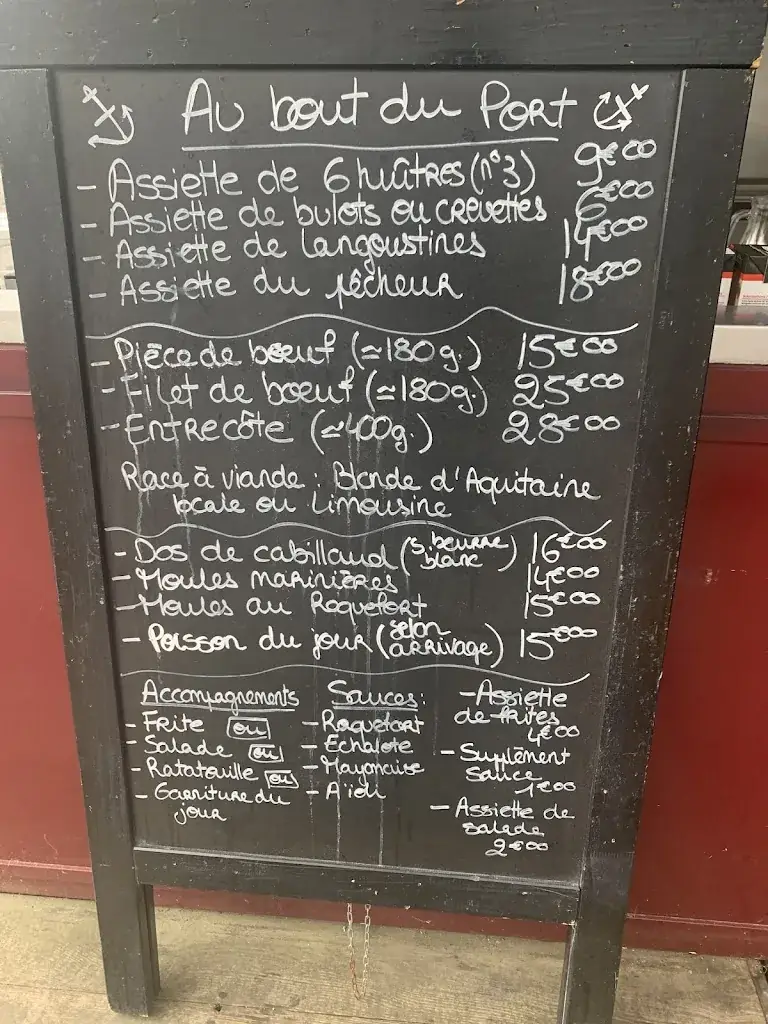 Au bout du Port
- Assiette de 6 huîtres (n°3) 9€00
- Assiette de bulots ou crevettes 6€00
- Assiette de langoustines 14€00
- Assiette du pêcheur 18€00
- Pièce de bœuf (≃180g.) 15€00
- Filet de bœuf (≃180g.) 25€00
- Entrecôte (≃400g.) 28€00
Race à viande : Blonde d'Aquitaine
locale ou Limousine
- Dos de cabillaud (s. beurre blanc) 16€00
- Moules marinières 14€00
- Moules au Roquefort 15€00
- Poisson du jour (selon arrivage) 15€00
Accompagnements
- Frite ou
- Salade ou
- Ratatouille ou
- Garniture du
jour
Sauces :
- Roquefort
- Echalote
- Mayonaise
- Aïoli
- Assiette
de frites
4€00
- Suplément
sauce
1€00
- Assiette de
salade
2€00